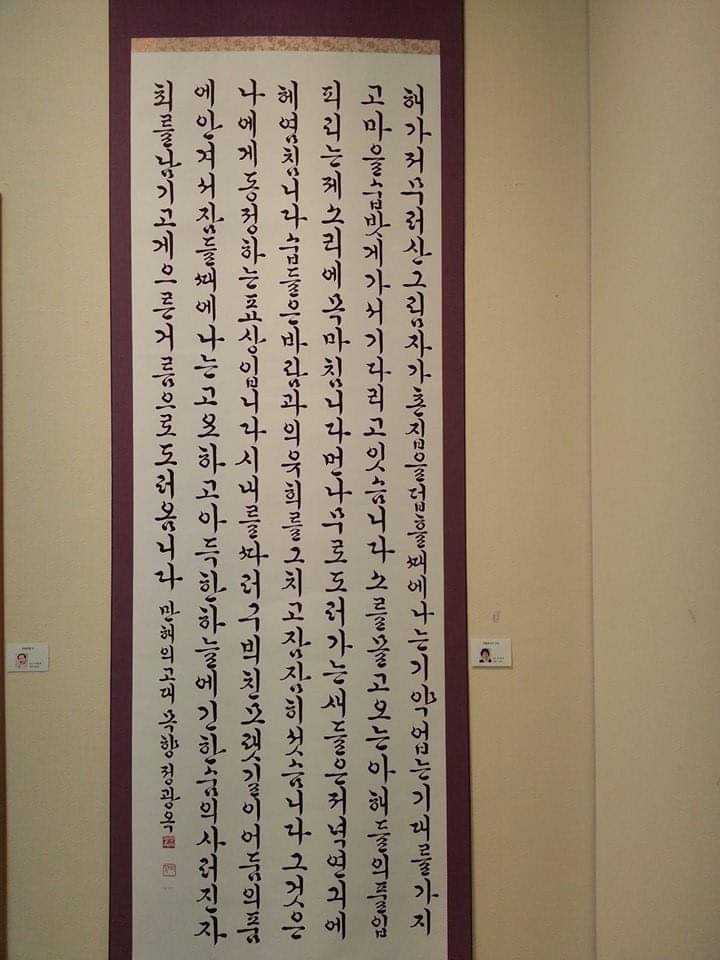 해가저무러산그림자가촌집을덥흘ᄯᅢ에나는기약업는기대를가지
고마을숩밧게가서기다리고잇슴니다소를몰고오는아해들의풀입
피리는제소리에목마침니다먼나무로도러가는새들은저녁연긔에
헤엄침니다숩들은바람과의유희를그치고잠잠히섯슴니다그것은
나에게동정하는표상임니다시내를ᄯᅡ러구븨친모랫길이어둠의품
에안겨서잠들ᄯᅢ에나는고요하고아득한하늘에긴한숨의사러진자
최를남기고게으른거름으로도러옴니다 만해의고대 목향 정광옥